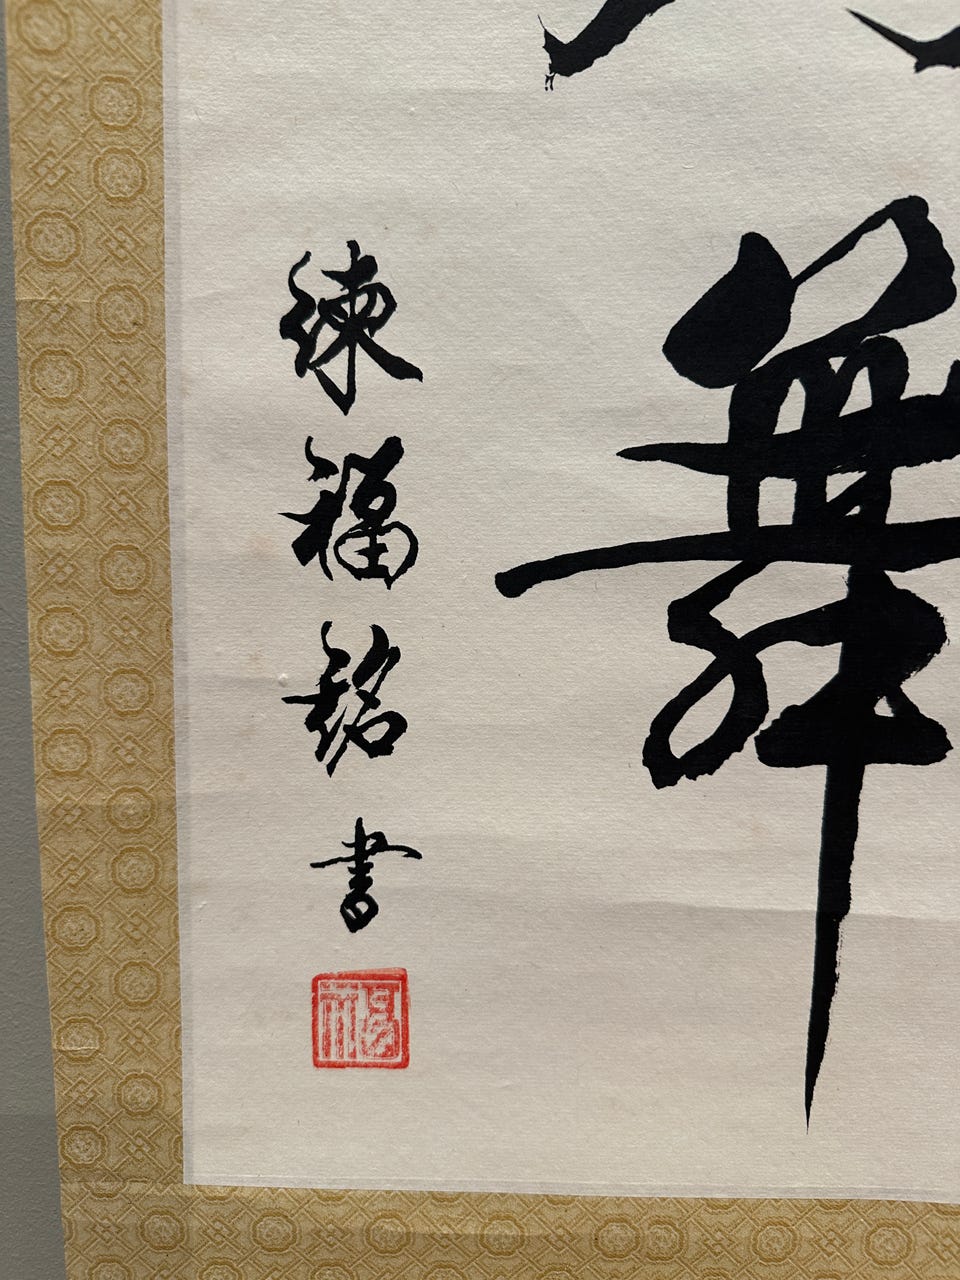 舞
練福銘書